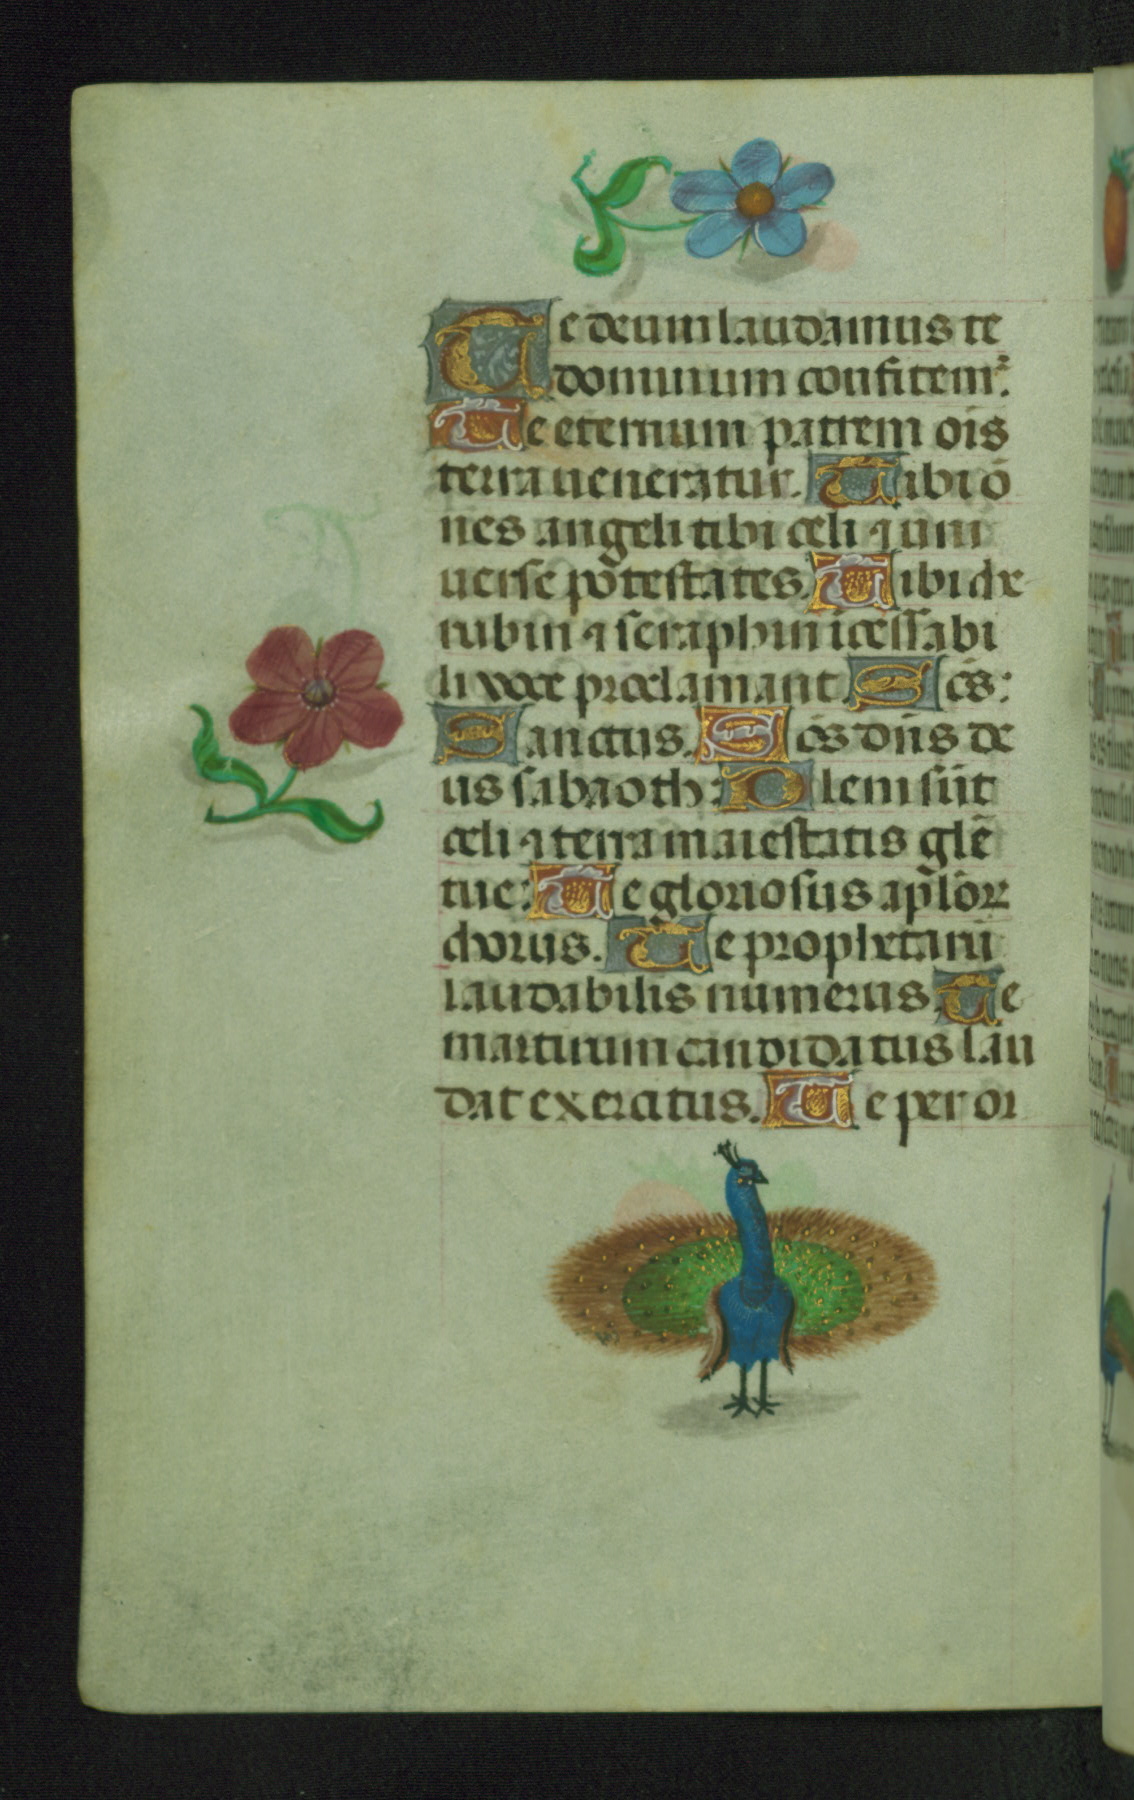 Te deum laudamus te
dominum confitemr̃.
Te eternum patrem oīs
terra ueneratur. Tibi ō
nes angeli tibi celi ⁊ uni
uerse pōtestates. Tibi che
rubin ⁊ seraphin īcessabi
li voce proclamant. Scs̄:
Sanctus. Scs̄ dn̄s de
us sabaoth: Pleni sūt
celi ⁊ terra maiestatis glē
tue: Te gloriosus apl̄oꝝ
chorus. Te prophetarū
laudabilis numerus. Te
martirum candidatus lau
dat exercitus. Te per or